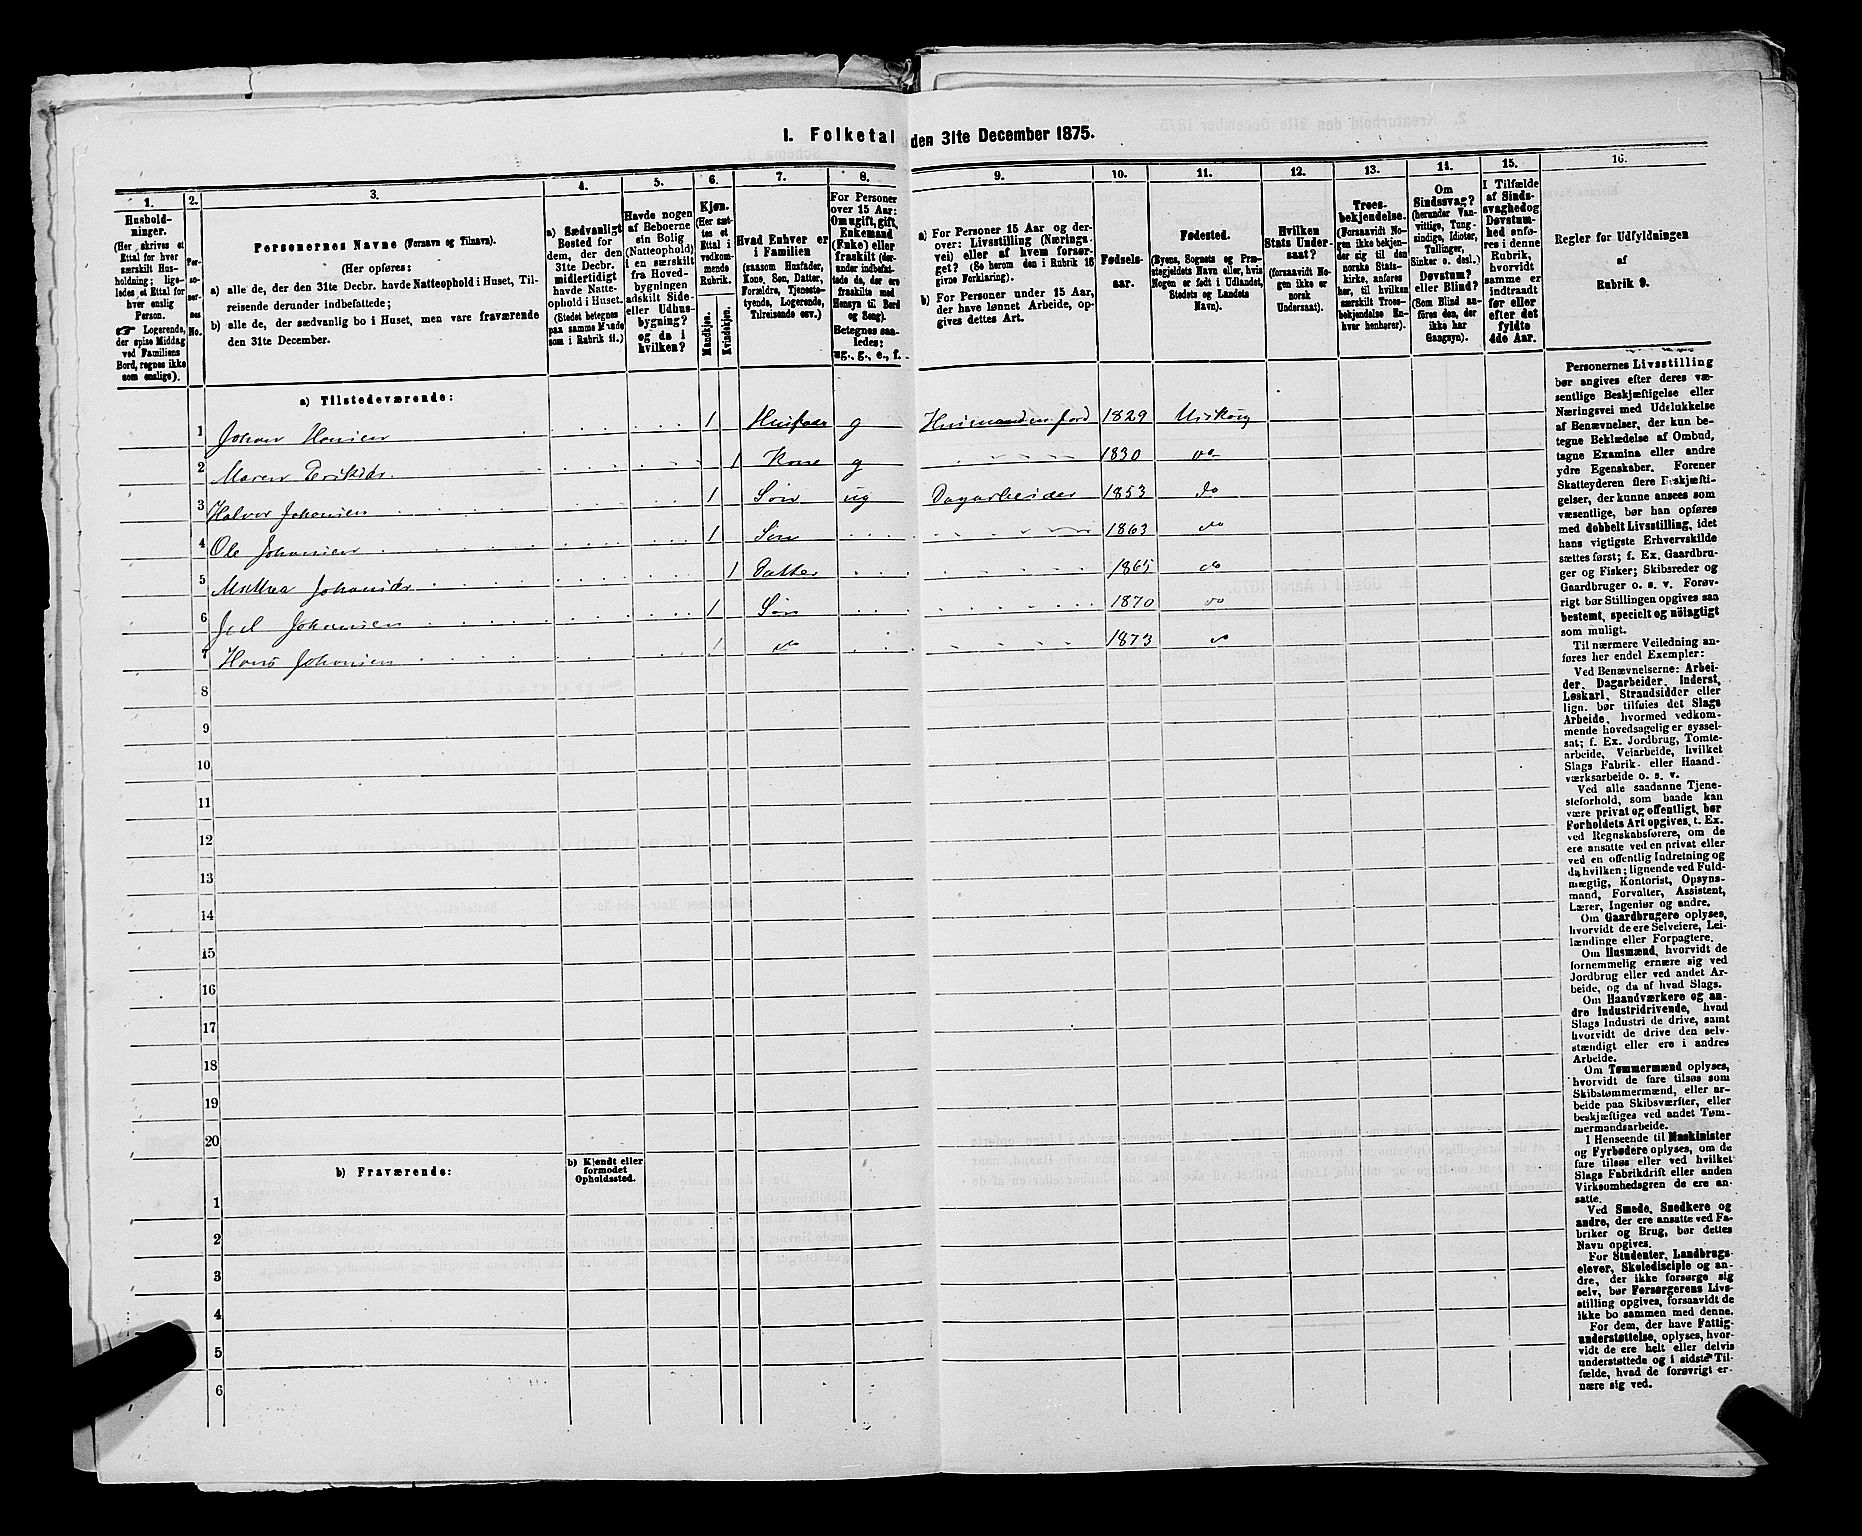 1. Folketal den 31te December 1875.
1. 2. 3. 4. 5. 6. 7. 8. 9. 10. 11. 12. 13. 14. 15. 16.
Hushold-
ninger.
(Her skrives et
Ettal for hver
særskilt Hus-
holdning; lige-
ledes et Ettal for
hver enslig
Person.
☞ Logerende,
der spise Middag
ved Familiens
Bord, regnes ikke
som enslige).
Per-
so-
ner-
nes
No.
Personernes Navne (Fornavn og Tilnavn).
(Her opføres:
a) alle de, der den 31te Decbr. havde Natteophold i Huset, Til-
reisende derunder indbefattede;
b) alle de, der sædvanlig bo i Huset, men vare fraværende
den 31te December.
a) Sædvanligt
Bosted for
dem, der den
31te Decbr.
midlertidigt
havde Natte-
ophold i Huset.
(Stedet betegnes
paa samme Maade
som i Rubrik 11.)
Havde nogen
af Beboerne
sin Bolig
(Natteophold)
i en særskilt
fra Hoved-
bygningen
adskilt Side-
eller Udhus-
bygning?
og da i
hvilken?
Kjøn.
(Her sæt-
tes et
Ettal i
vedkom-
mende
Rubrik.
Mandkjøn.
Kvindekjøn.
Hvad Enhver er
i Familien
(saasom Husfader,
Kone, Søn, Datter,
Forældre, Tjeneste-
tyende, Logerende,
Tilreisende osv.)
For Personer
over 15 Aar:
Om ugift, gift,
Enkemand
(Enke) eller
fraskilt (der-
under indbefat-
tede de, der ere
fraskilte med
Hensyn til Bord
og Seng).
Betegnes saa-
ledes:
ug., g., e., f.
a) For Personer 15 Aar og der-
over: Livsstilling (Nærings-
vei) eller af hvem forsør-
get? (Se herom den i Rubrik 16
givne Forklaring).
b) For Personer under 15 Aar,
der have lønnet Arbeide, op-
gives dettes Art.
Fødsels-
aar.
Fødested.
(Byens, Sognets og Præ-
stegjeldets Navn eller, hvis
Nogen er født i Udlandet,
Stedets og Landets
Navn).
Hvilken
Stats Under-
saat?
(forsaavidt No-
gen ikke er
norsk
Undersaat).
Troes-
bekjendelse.
(Forsaavidt No-
gen ikke bekjen-
der sig til den
norske Stats-
kirke, anføres
her, til hvilken
særskilt Troes-
bekjendelse En-
hver henhører).
Om
Sindssvag?
(herunder Van-
vittige, Tung-
sindige, Idioter,
Tullinger,
Sinker o. desl.)
Døvstum?
eller Blind?
(Som Blind an-
føres den, der
ikke har
Gangsyn).
I Tilfælde
af Sinds-
svaghed og
Døvstum-
hed anfø-
res i denne
Rubrik,
hvorvidt
samme er
indtraadt
før eller
efter det
fyldte
4de Aar.
Regler for Udfyldningen
af
Rubrik 9.
a) Tilstedeværende:
1 Johan Hansen 1 Husfader g Husmand m jord 1829
2 Maren Eriksdr. 1 Kone g 1830 do
3 Halvor Johansen 1 Søn ug Dagarbeider 1853 do
4 Ole Johansen 1 Søn 1863 do
5 Mathea Johansdr 1 Datter 1865 do
6 Joel Johansen 1 Søn 1870 do
7 Hans Johansen 1 do 1873 do
8
9
10
11
12
13
14
15
16
17
18
19
20
b) Fraværende:
b) Kjendt eller
formodet
Opholdssted.
1
2
3
4
5
6
Personernes Livsstilling
bør angives efter deres væ-
sentlige Beskjæftigelse eller
Næringsvei med Udelukkelse
af Benævnelser, der kun be-
tegne Beklædelse af Ombud,
tagne Examina eller andre
ydre Egenskaber. Forener
Skatteyderen flere Beskjæfti-
gelser, der kunne ansees som
væsentlige, bør han opføres
med dobbelt Livsstilling, idet
hans vigtigste Erhvervskilde
sættes først; f. Ex. Gaardbru-
ger og Fisker; Skibsreder og
Gaardbruger o. s. v. Forøv-
rigt bør Stillingen opgives saa
bestemt, specielt og nöiagtigt
som muligt.
Til nærmere Veiledning an-
føres her endel Exempler:
Ved Benævnelserne: Arbei-
der, Dagarbeider, Inderst,
Løskarl, Strandsidder eller
lign. bør tilføies det Slags
Arbeide, hvormed vedkom-
mende hovedsagelig er syssel-
sat; f. Ex. Jordbrug, Tomte-
arbeide, Veiarbeide, hvilket
Slags Fabrik- eller Haand-
værksarbeide o. s. v.
Ved alle saadanne Tjene-
steforhold, som baade kan
være privat og offentligt, bør
Forholdets Art opgives, t. Ex.
ved Regnskabsførere, om de
ere ansatte ved en privat eller
ved en offentlig Indretning og
da hvilken; lignende ved Fuld-
mægtig, Kontorist, Opsyns-
mand, Forvalter, Assistent,
Lærer, Ingeniør og andre.
Om Gaardbrugere oplyses,
hvorvidt de ere Selveiere, Lei-
lændinge eller Forpagtere.
Om Husmænd, hvorvidt de
fornemmelig ernære sig ved
Jordbrug eller ved andet Ar-
beide, og da af hvad Slags.
Om Haandværkere og an-
dre Industridrivende, hvad
Slags Industri de drive, samt
hvorvidt de drive den selv-
stændigt eller ere i andres
Arbeide.
Om Tømmermænd oplyses,
hvorvidt de fare tilsøs som
Skibstømmermænd, eller ar-
beide paa Skibsværfter, eller
beskjæftiges ved andet Tøm-
mermandsarbeide.
I Henseende til Maskinister
og Fyrbødere oplyses, om de
fare tilsøs eller ved hvilket
Slags Fabrikdrift eller anden
Virksomhedsgren de ere an-
satte.
Ved Smede, Snedkere og
andre, der ere ansatte ved Fa-
briker og Brug, bør dettes
Navn opgives.
For Studenter, Landbrugs-
elever, Skoledisciple og an-
dre, der ikke forsørge sig
selv, bør Forsørgerens Livs-
stilling opgives, forsaavidt de
ikke bo sammen med denne.
For dem, der have Fattig-
understøttelse, oplyses, hvor-
vidt de ere helt eller delvis
understøttede og i sidste Til-
fælde, hvad de forøvrigt er-
nære sig ved.